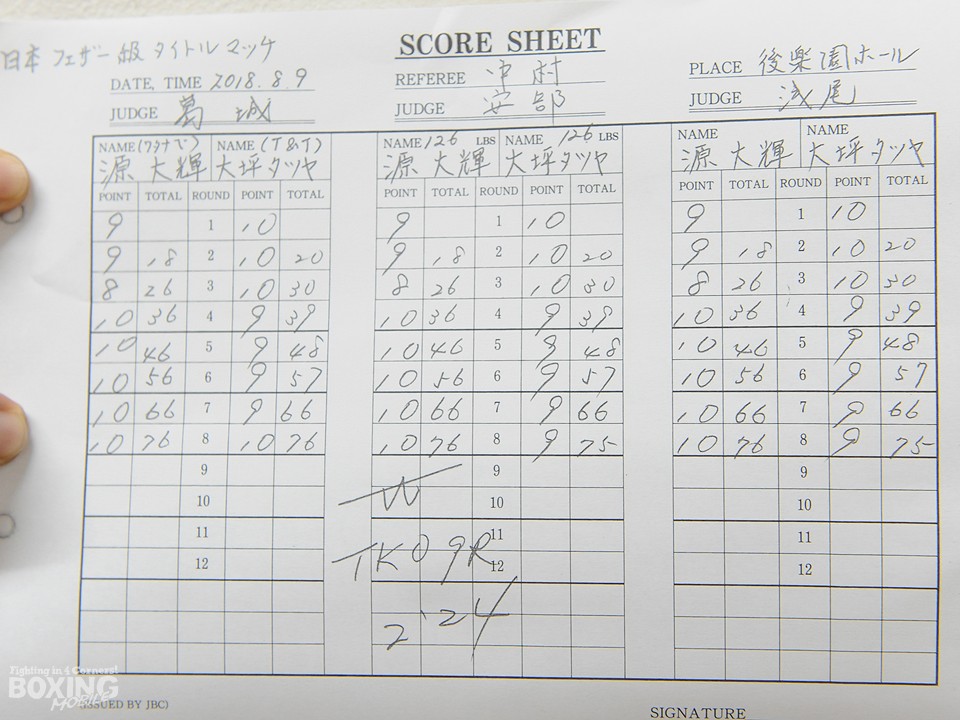 日本フェザー級タイトルマッチ
SCORE SHEET
DATE, TIME 2018.8.9
REFEREE 中村
PLACE 後楽園ホール
JUDGE 葛城
JUDGE 安部
JUDGE 浅尾
NAME (ワタナベ) NAME (T&T) NAME 126 LBS NAME 126 LBS NAME NAME
源 大輝 大坪タツヤ 源 大輝 大坪タツヤ 源 大輝 大坪タツヤ
POINT TOTAL ROUND POINT TOTAL POINT TOTAL ROUND POINT TOTAL POINT TOTAL ROUND POINT TOTAL
9 1 10 9 1 10 9 1 10
9 18 2 10 20 9 18 2 10 20 9 18 2 10 20
8 26 3 10 30 8 26 3 10 30 8 26 3 10 30
10 36 4 9 39 10 36 4 9 39 10 36 4 9 39
10 46 5 9 48 10 46 5 9 48 10 46 5 9 48
10 56 6 9 57 10 56 6 9 57 10 56 6 9 57
10 66 7 9 66 10 66 7 9 66 10 66 7 9 66
10 76 8 10 76 10 76 8 9 75 10 76 8 9 75
9 9 9
10 W 10 10
11 11 11
12 TKO 9R 12 12
2'24
Fighting in 4 Corners!
BOXING
MOBILE
(ISSUED BY JBC)
SIGNATURE